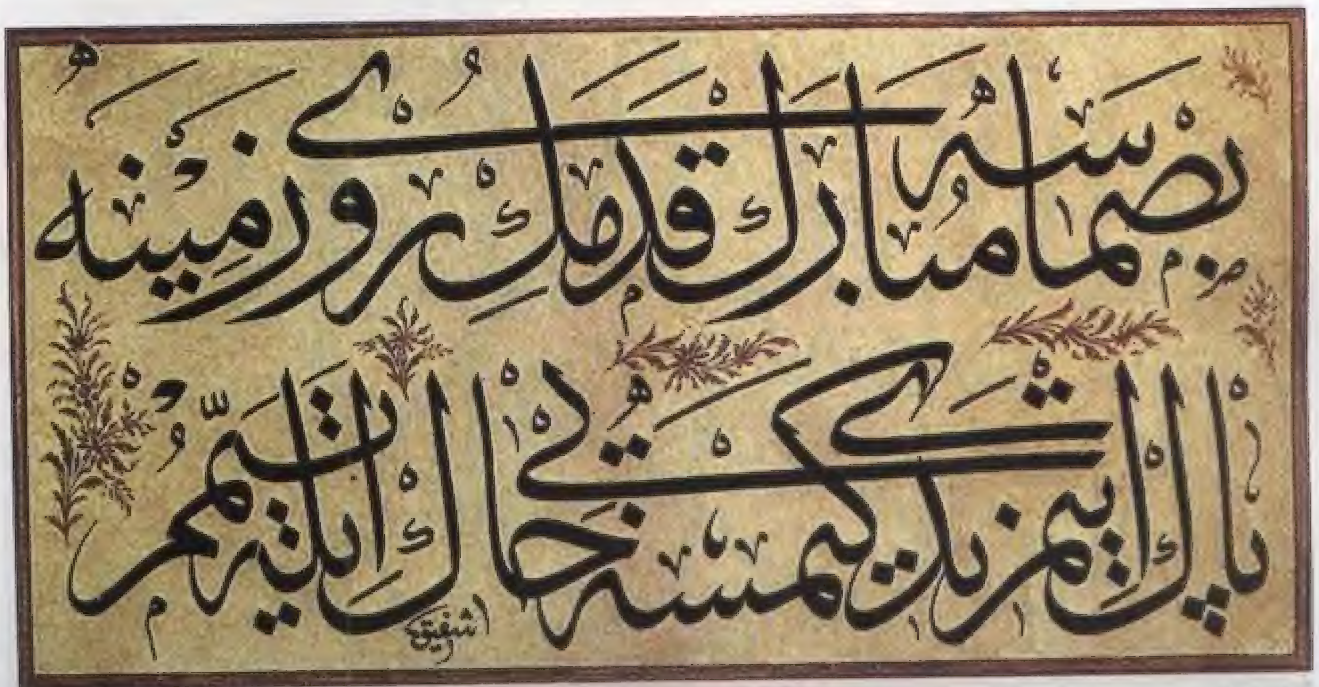 بصماسه مبارك قدمك روى زمينه
پاك ايتمز ايدى كيمسه يى خاك ايله تيمم
شفيق